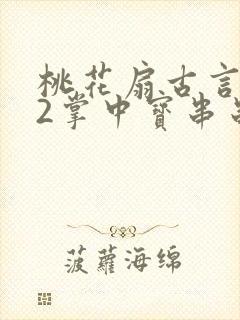 桃花扇古言
2掌中寶串
菠蘿海綿